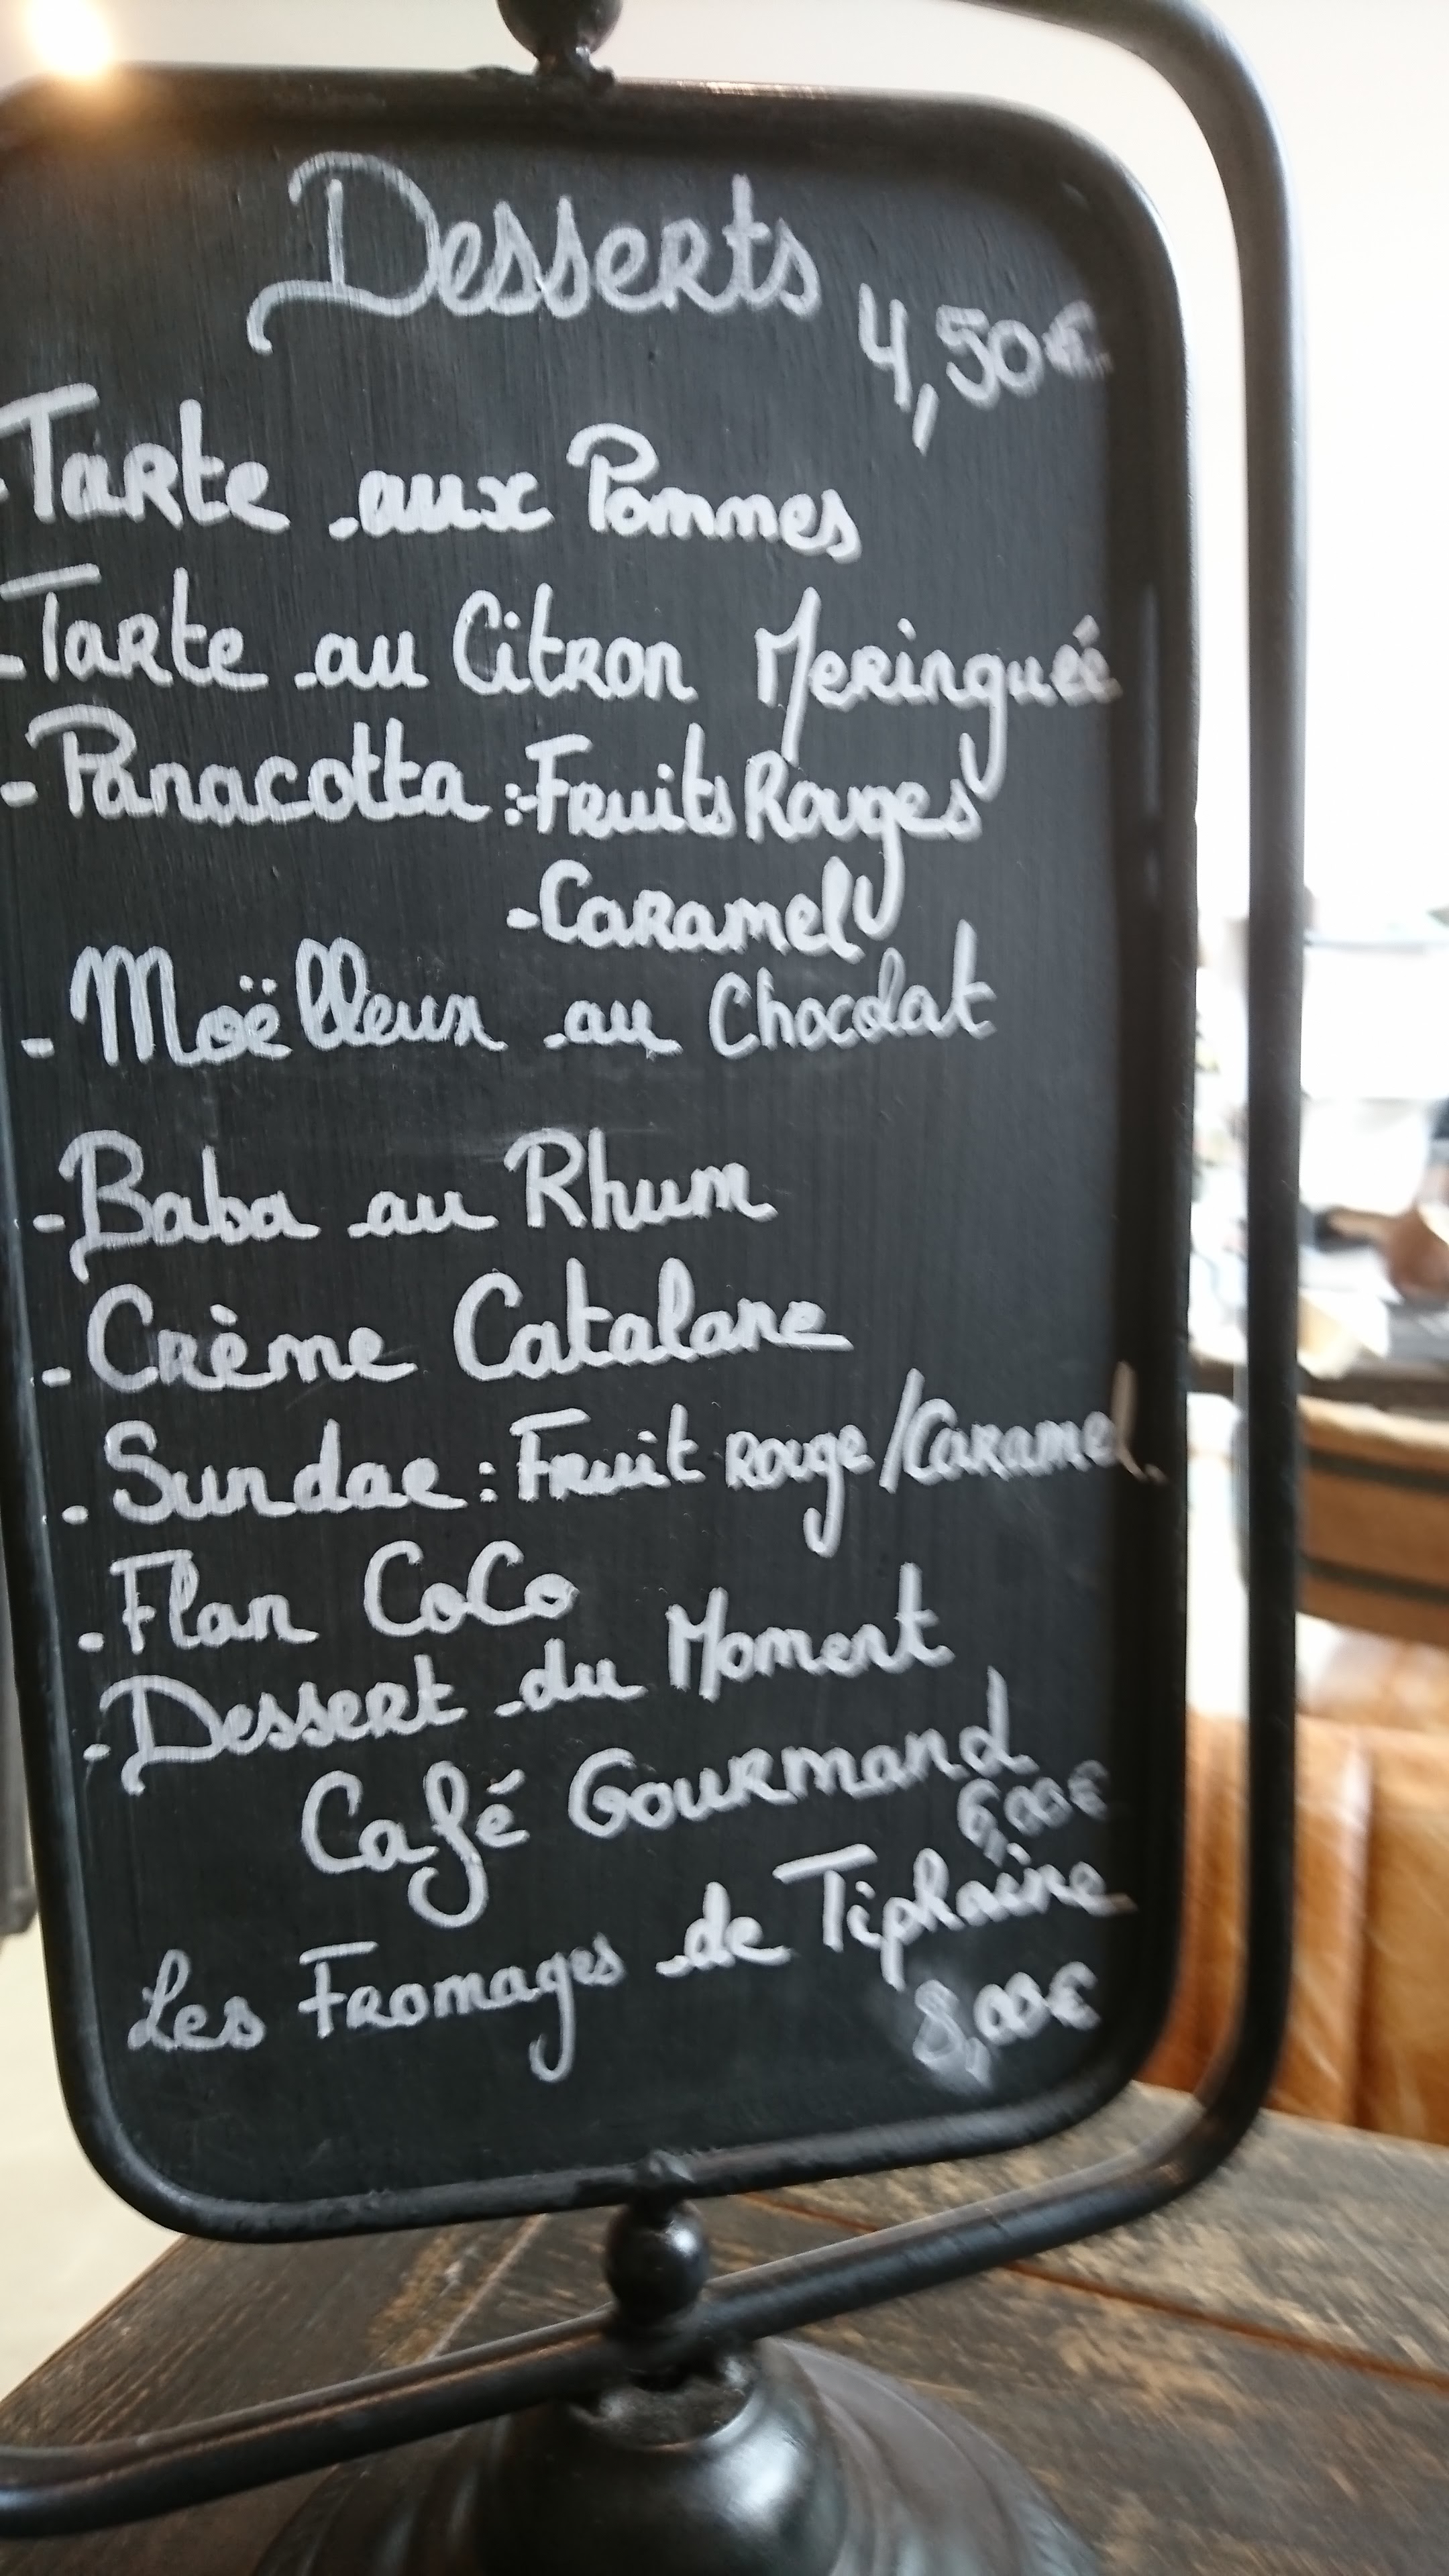 Desserts
4,50€
-Tarte aux Pommes
-Tarte au Citron Meringuée
-Panacotta :-Fruits Rouges
-Caramel
-Moëlleux au Chocolat
-Baba au Rhum
-Crème Catalane
-Sundae : Fruit rouge/Caramel
-Flan CoCo
-Dessert du Moment
Café Gourmand
6,00€
Les Fromages de Tiphaine
8,00€